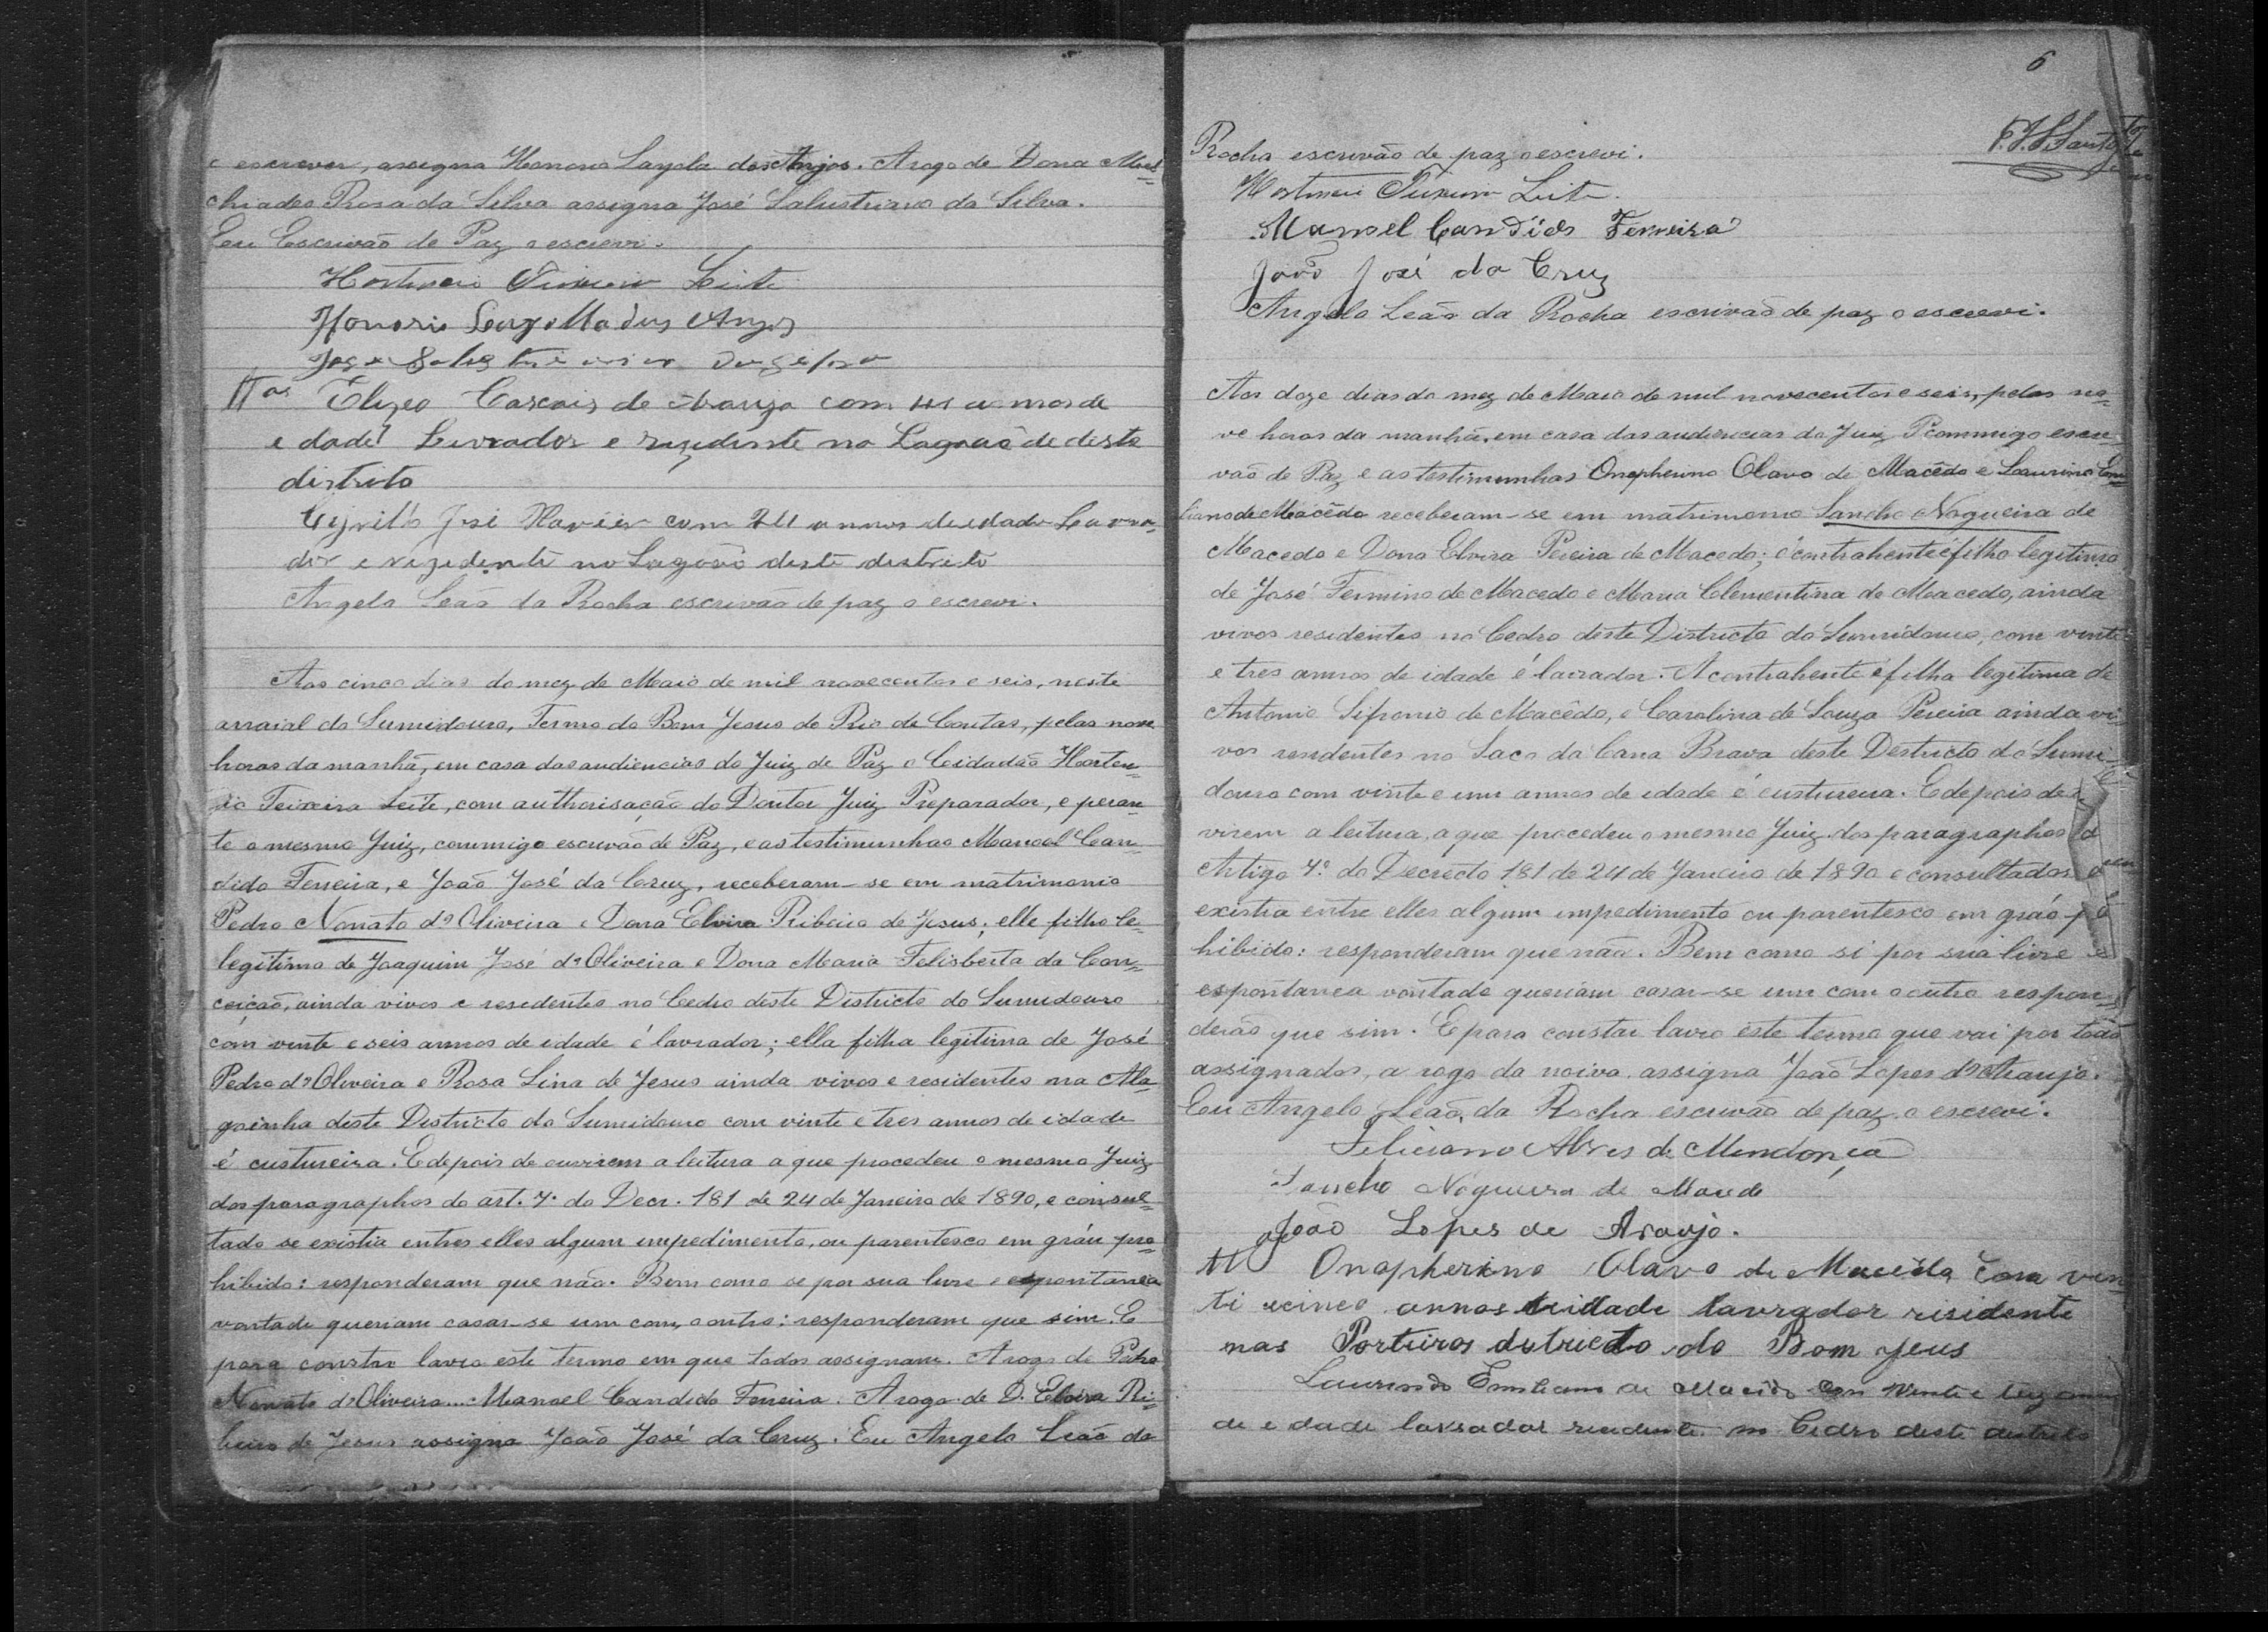 e escrever, assigna Honorio Layola dos Anjos. Arogo de Dona Mel=
chiades Rosa da Silva assigna José Salustriano da Silva.
Eu Escrivão de Paz o escrevi.
Hortencio Teixeira Leite
Honorio Layolla dus Anjos
Jose
Ttas Elizeo Cascais de Araujo com annos de
e dade Lavrador e rezidente no Lagoão de deste
distrito
Cyrillo José Xavier com 24 annos de idade Lavra-
dor e rezedente no Lagoão deste destrito
Angelo Leão da Rocha escrivão de paz o escrevi.
Aos cinco dias do mez de Maio de mil novecentos e seis, neste
arraial do Sumidouro, Termo do Bom Jesus do Rio de Contas, pelas nove
horas da manhã, em casa das audiencias do Juiz de Paz o Cidadão Horten=
sio Teixeira Leite, com authorisação do Doutor Juiz Preparador, e peran=
te o mesmo Juiz, commigo escrivão de Paz, e as testimunhas Manoel Can=
dido Ferreira, e João José da Cruz, receberam-se em matrimonio
Pedro Nonato d'Oliveira e Dona Elvira Ribeiro de Jesus; elle filho le=
legitimo de Joaquim José d'Oliveira e Dona Maria Felisberta da Con=
ceição, ainda vivos e residentes no Cedro deste Districto do Sumidouro
com vinte e seis annos de idade é lavrador; ella filha legitima de José
Pedro d'Oliveira e Rosa Lina de Jesus ainda vivos e residentes na Ala=
goinha deste Districto do Sumidouro com vinte e tres annos de idade
é custureira. E depois de ouvirem a leitura a que procedeu o mesmo Juiz
dos paragraphos do art. 7º do Decr. 181 de 24 de Janeiro de 1890, e consul=
tado se existia entres elles algum impedimento, ou parentesco em gráu pro=
hibido: responderam que não. Bem como se por sua livre e espontanea
vontade queriam casar-se um com o outro: responderam que sim. E
para constar lavro este termo em que todos assignam. Arogo de Pedro
Nonato d'Oliveira... Manoel Candido Ferreira. Arogo de D. Elvira Ri=
beiro de Jesus assigna João José da Cruz. Eu Angelo Leão da
6
F. J. S. Santos
Rocha escrivão de paz o escrevi.
Hortencio Teixeira Leite.
Manoel Candido Ferreira
João José da Cruz
Angelo Leão da Rocha escrivão de paz o escrevi.
Aos doze dias do mez de Maio de mil novecentos e seis, pelas no=
ve horas da manhã, em casa das audiencias do Juiz P commigo escri=
vão de Paz e as testimunhas Onopherino Olavo de Macêdo e Laurino Emi=
liano de Macêdo receberam-se em matrimonio Sancho Nogueira de
Macedo e Dona Elvira Pereira de Macedo; o contrahente é filho legitimo
de José Fermino de Macedo e Maria Clementina de Macedo, ainda
vivos residentes no Cedro deste Districto do Sumidouro, com vinte
e tres annos de idade é lavrador. A contrahente é filha legitima de
Antonio Sifronio de Macêdo, e Carolina de Souza Pereira ainda vi=
vos residentes no Saco da Cana Brava deste Destricto do Sumi=
douro com vinte e um annos de idade é custureira. E depois de
virem a leitura, a que procedeu o mesmo Juiz dos paragraphos do
Artigo 7º do Decrecto 181 de 24 de Janeiro de 1890 e consultados
existia entre elles algum impedimento ou parentesco em gráo
hibido: responderam que não. Bem como si por sua livre e
espontanea vontade queriam casar-se um com o outro respon=
derão que sim. E para constar lavro este termo que vai por todos
assignados, a rogo da noiva assigna João Lopes d'Araujo.
Eu Angelo Leão da Rocha escrivão de paz o escrevi.
Feliciano Alves de Mendonça
Sancho Nogueira de Macedo
João Lopes de Araujo.
Onopherino Olavo de Macêdo com vin
ti ecinco annos deidade lavrador risidente
nas Porteiras distriecto do Bom Jeus
Laurindo Emiliano de Macêdo com vinte e tres annos
de e dade lavrador residente no Cedro deste destrito